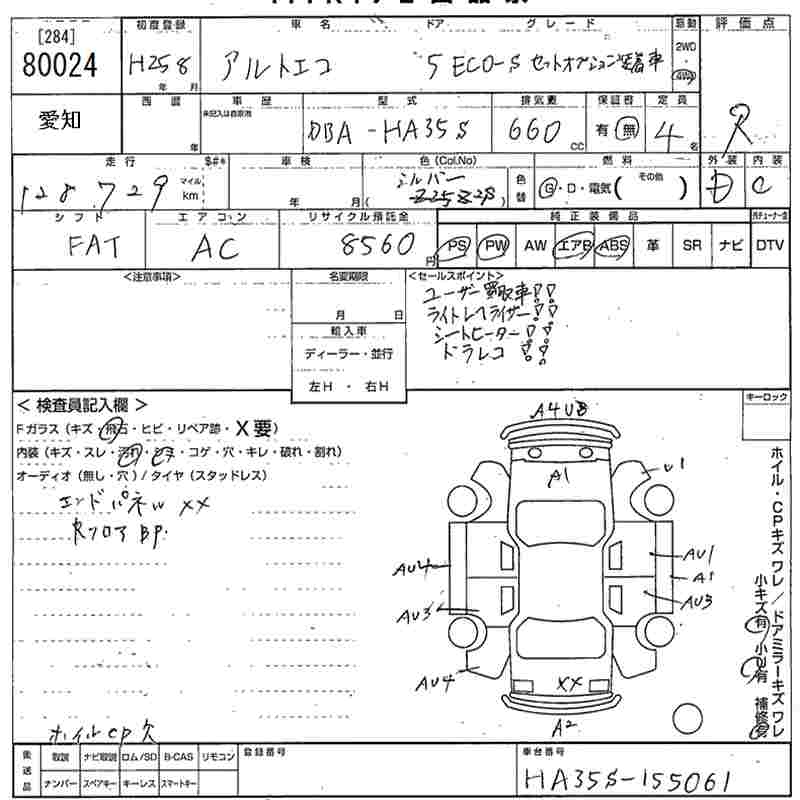 [284]
80024
初度登録
車名
ドア
グレード
駆動
評価点
H25 8
年 月
アルトエコ
5 ECO-S セットオプション装着車
2WD
・
4WD
R
愛知
西暦
年
車歴
未記入は自家用
型式
DBA-HA35S
排気量
660
CC
保証書
有 ・ 無
定員
4
名
走行
128,729
マイル
km
$#*
車検
年 月
色(Col.No)
シルバー
Z2S Z2S
色替
燃料
G・D・電気( その他 )
外装
D
内装
C
シフト
FAT
エアコン
AC
リサイクル預託金
8560
円
純正装備品
PS PW AW エアB ABS 革 SR ナビ
DTV
<注意事項>
名変期限
月 日
輸入車
ディーラー・並行
左H ・ 右H
<セールスポイント>
ユーザー買取車!!
ライトレベライザー!!
シートヒーター!!
ドラレコ !!
< 検査員記入欄 >
Fガラス(キズ・飛石・ヒビ・リペア跡・X要)
内装(キズ・スレ・汚れ・シミ・コゲ・穴・キレ・破れ・割れ)
オーディオ(無し・穴)/タイヤ(スタッドレス)
エンドパネル XX
Rフロア BP.
ホイルCP欠
キーロック
A4 U3
A1
U1
AU4
AU1
A1
AU3
AU3
AU4
XX
A2
ホイル・CPキズ ワレ/ドアミラーキズ ワレ
小キズ有 小U有 補修有
後送品
取説 ナビ取説 ロム/SD B-CAS リモコン
ナンバー スペアキー キーレス スマートキー
登録番号
車台番号
HA35S-155061